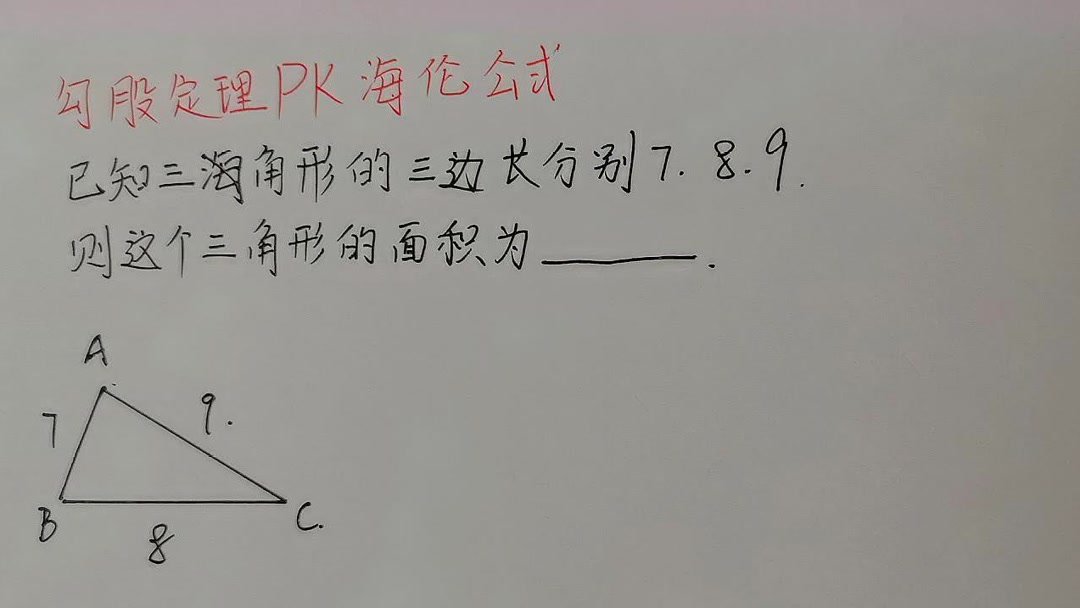 勾股定理PK海伦公式
已知三角形的三边长分别7.8.9.
则这个三角形的面积为______.
A
7
9.
B
8
C.